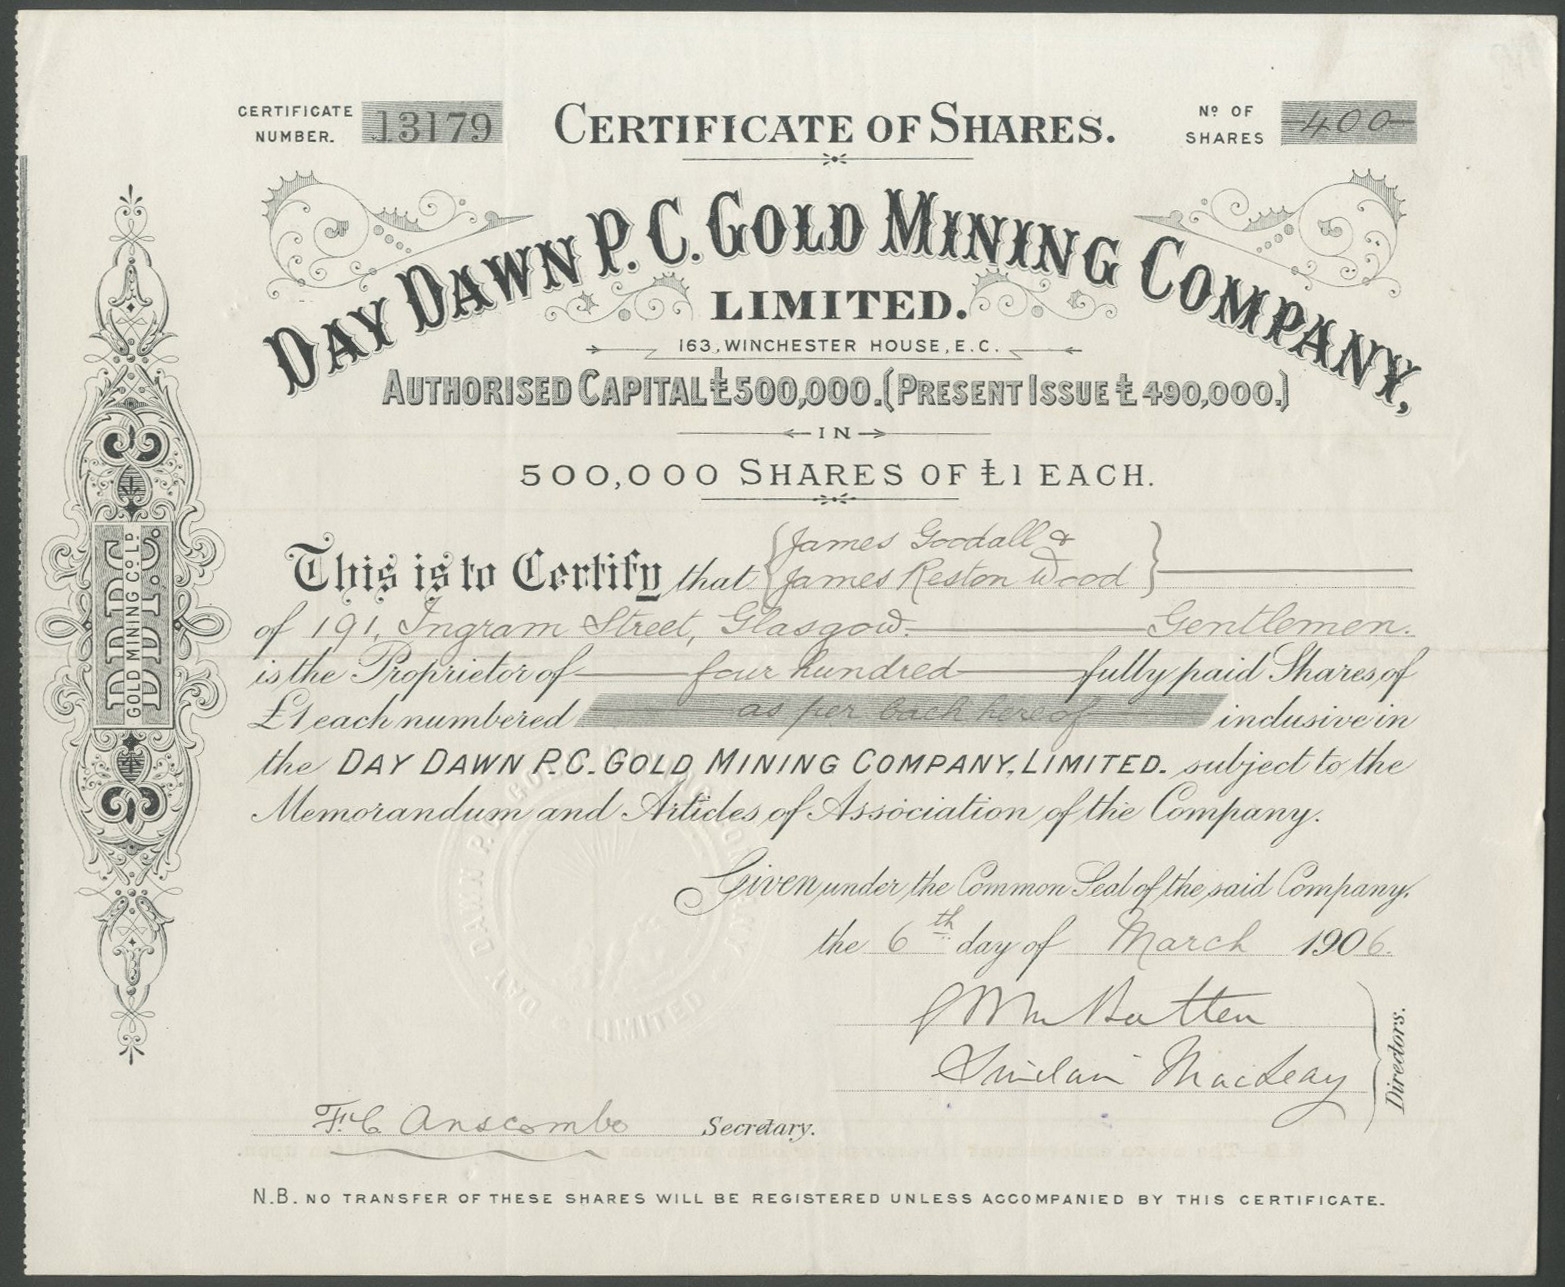 CERTIFICATE NUMBER. 13179
CERTIFICATE OF SHARES.
Nº OF SHARES 400
DAY DAWN P. C. GOLD MINING COMPANY,
LIMITED.
163, WINCHESTER HOUSE, E. C.
AUTHORISED CAPITAL £500,000. (PRESENT ISSUE £490,000.)
IN
500,000 SHARES OF £1 EACH.
This is to Certify that {James Goodall &
James Reston Wood}
of 191, Ingram Street, Glasgow. Gentlemen.
is the Proprietor of four hundred fully paid Shares of
£1 each numbered as per back hereof inclusive in
the DAY DAWN P.C. GOLD MINING COMPANY, LIMITED. subject to the
Memorandum and Articles of Association of the Company.
Given under the Common Seal of the said Company,
the 6th day of March 1906.
Batten
Sinclair MacLeay
Directors.
F. C. Anscombe Secretary.
N.B. NO TRANSFER OF THESE SHARES WILL BE REGISTERED UNLESS ACCOMPANIED BY THIS CERTIFICATE.
D.D.P.C.
GOLD MINING CO LD
DAY DAWN P. C. GOLD MINING COMPANY LIMITED